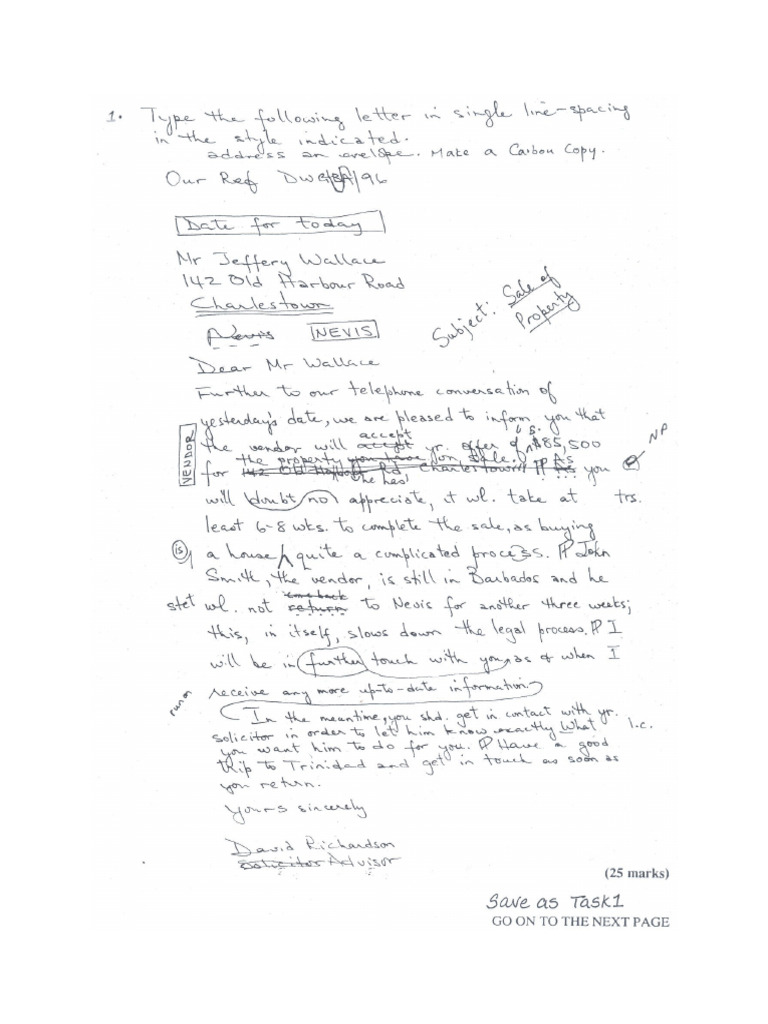 1. Type the following letter in single line-spacing
in the style indicated.
address an envelope. Make a Carbon Copy.
Our Ref DW /96
Date for today
Mr Jeffery Wallace
142 Old Harbour Road
Charlestown
Nevis NEVIS
Subject: Sale of
Property
Dear Mr Wallace
Further to our telephone conversation of
yesterday's date, we are pleased to inform you that
U.S.
accept
VENDOR the vendor will accept yr. offer of $85,500 NP
the property you have on sale. As
for 142 Old Rd Charlestown P As you
will doubt no appreciate, it wl. take at trs.
least 6-8 wks. to complete the sale, as buying
is a house quite a complicated process. P John
Smith, the vendor, is still in Barbados and he
come back
stet wl. not return to Nevis for another three weeks;
this, in itself, slows down the legal process. P I
will be in further touch with you, as & when I
run on receive any more up-to-date information.
In the meantime, you shd. get in contact with yr.
solicitor in order to let him know exactly What l.c.
you want him to do for you. P Have a good
trip to Trinidad and get in touch as soon as
you return.
Yours sincerely
David Richardson
Solicitor Advisor
(25 marks)
Save as Task1
GO ON TO THE NEXT PAGE